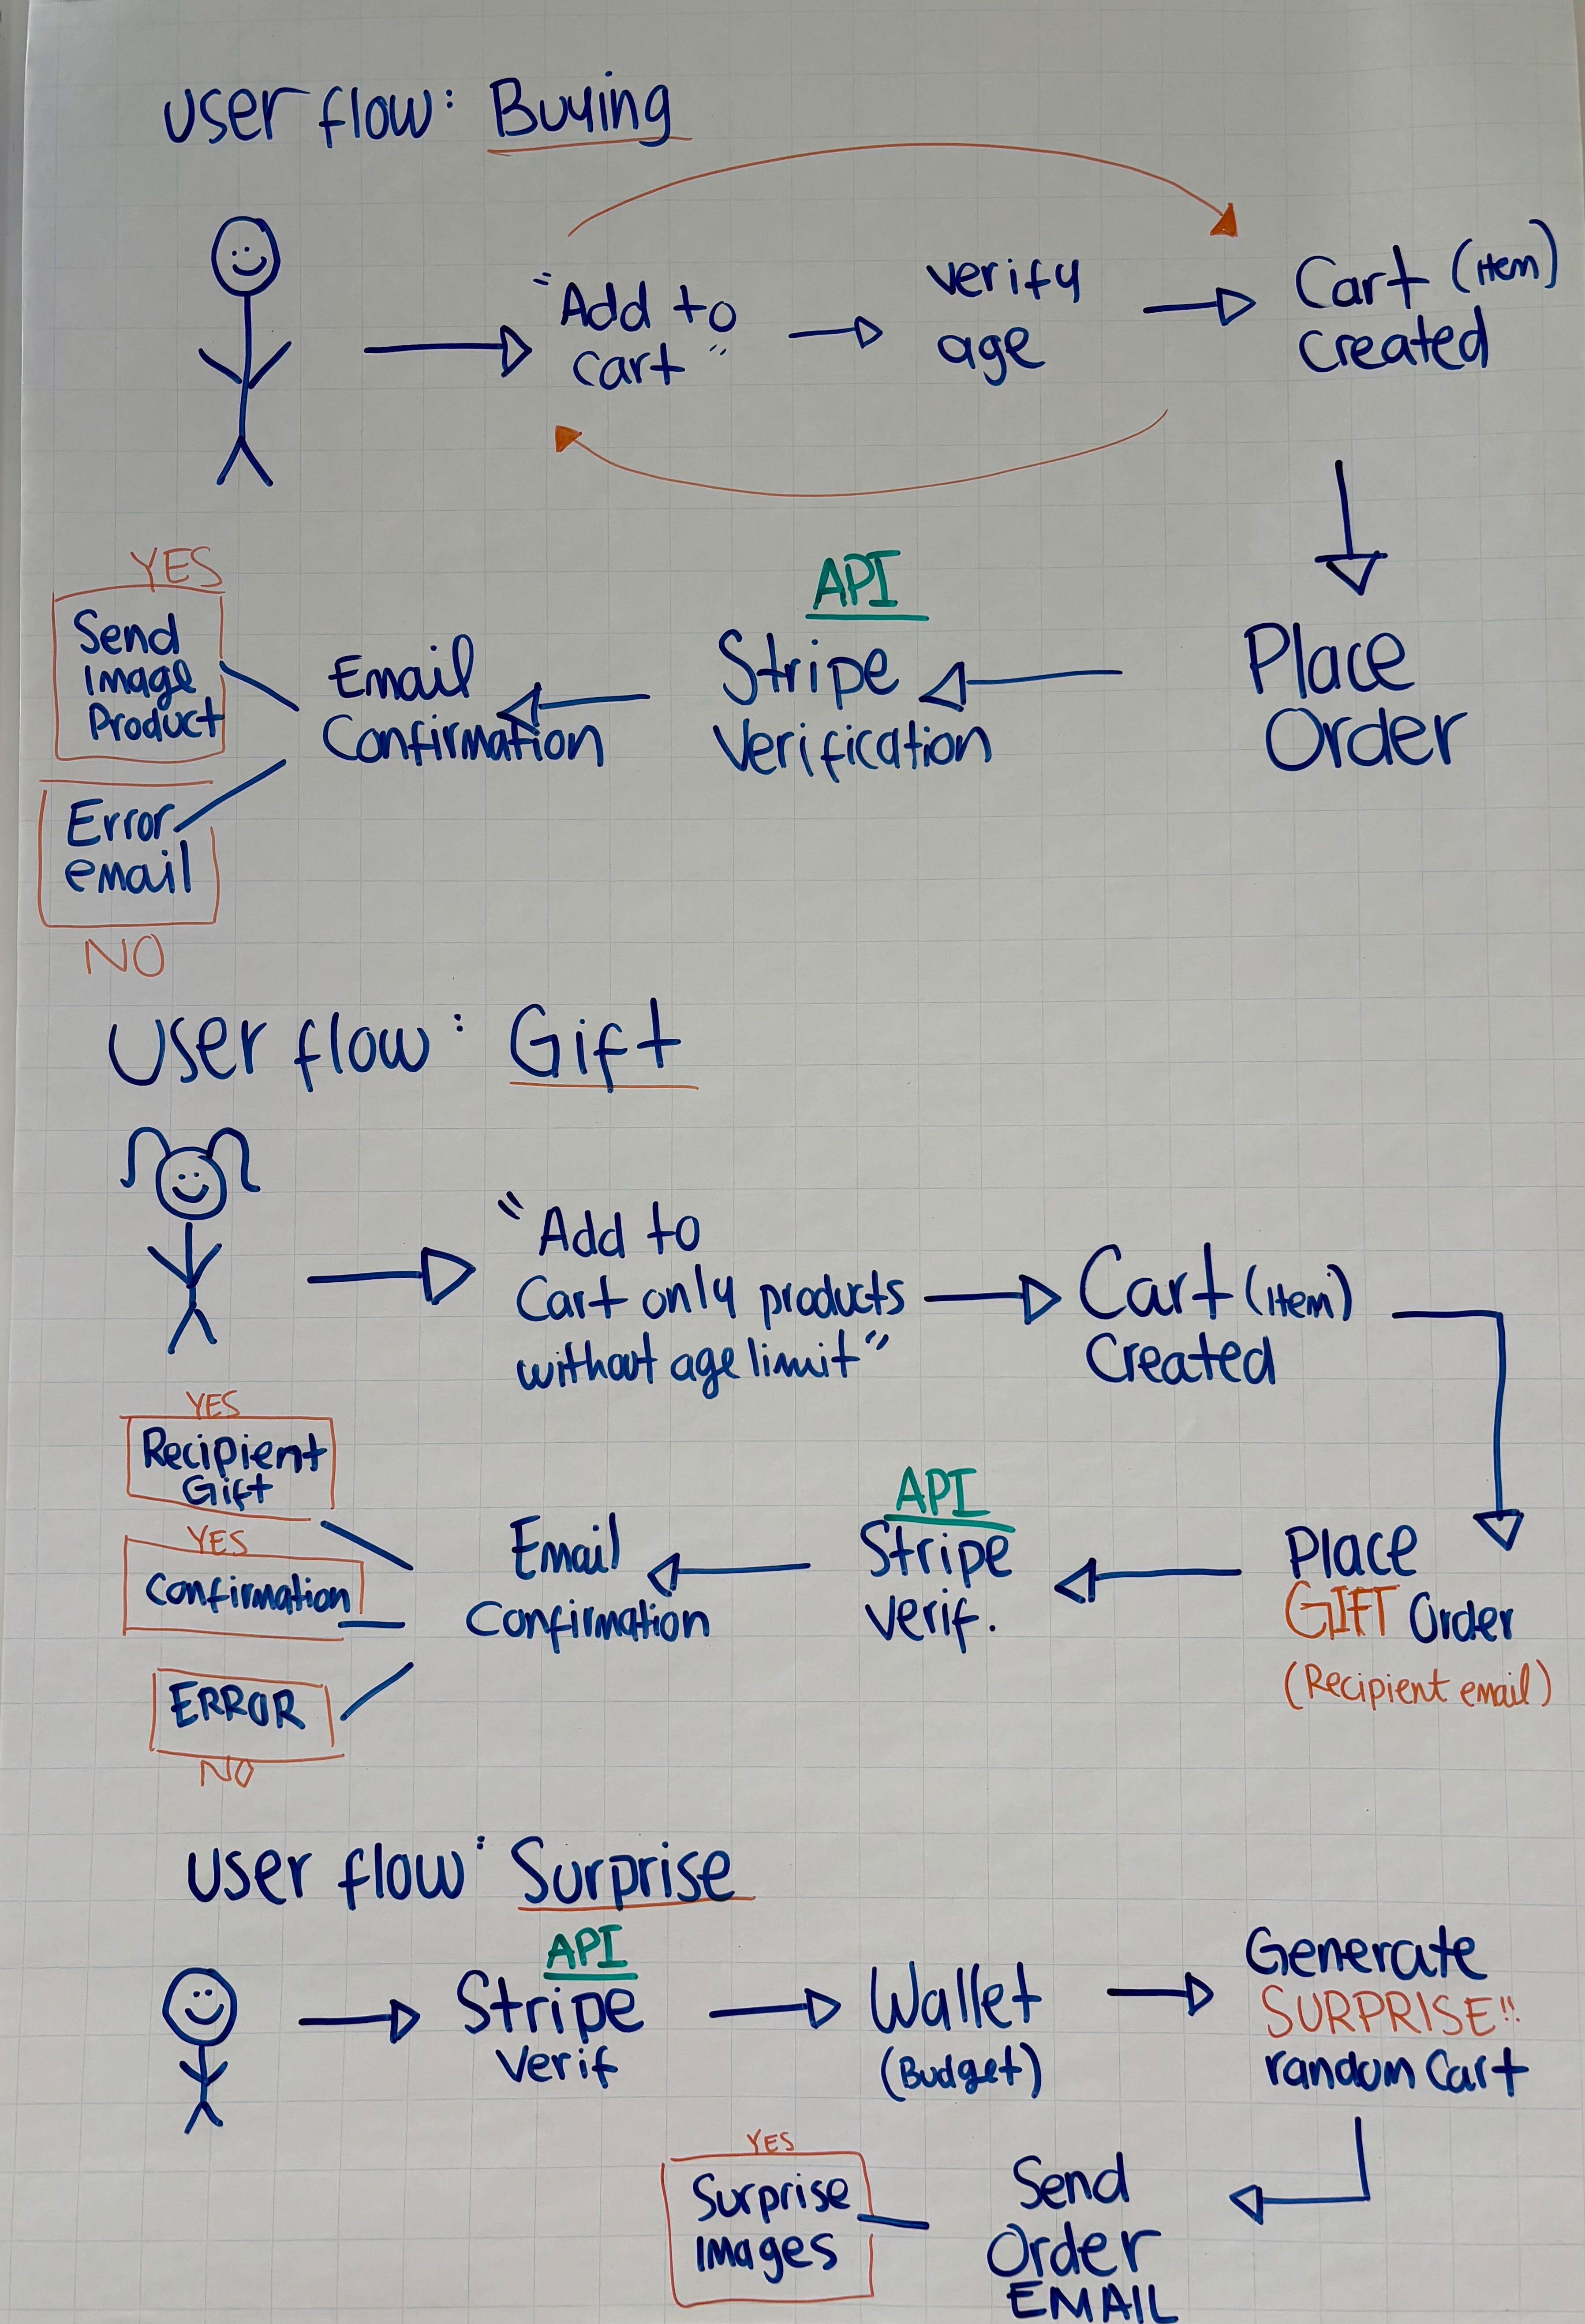 User flow: Buying
"Add to
cart"
verify
age
Cart (item)
created
Place
Order
API
Stripe
Verification
Email
Confirmation
YES
Send
Image
Product
Error
email
NO
User flow: Gift
"Add to
Cart only products
without age limit"
Cart (item)
Created
Place
GIFT Order
(Recipient email)
API
Stripe
verif.
Email
Confirmation
YES
Recipient
Gift
YES
Confirmation
ERROR
NO
User flow: Surprise
API
Stripe
Verif
Wallet
(Budget)
Generate
SURPRISE!!
random Cart
Send
Order
EMAIL
YES
Surprise
Images